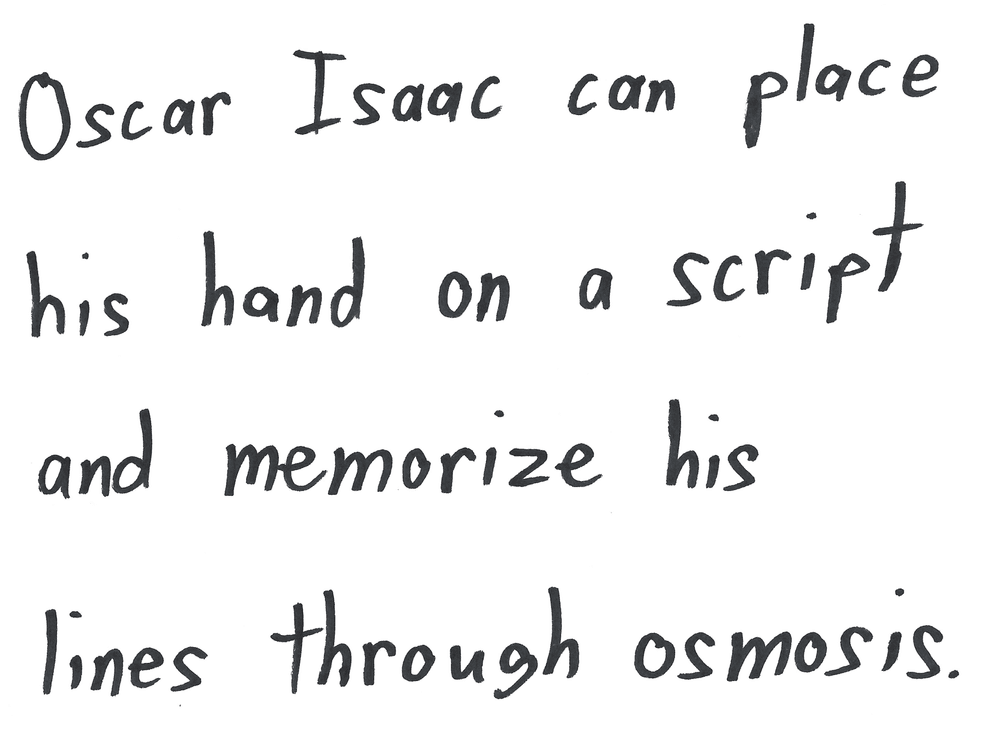 Oscar Isaac can place
his hand on a script
and memorize his
lines through osmosis.